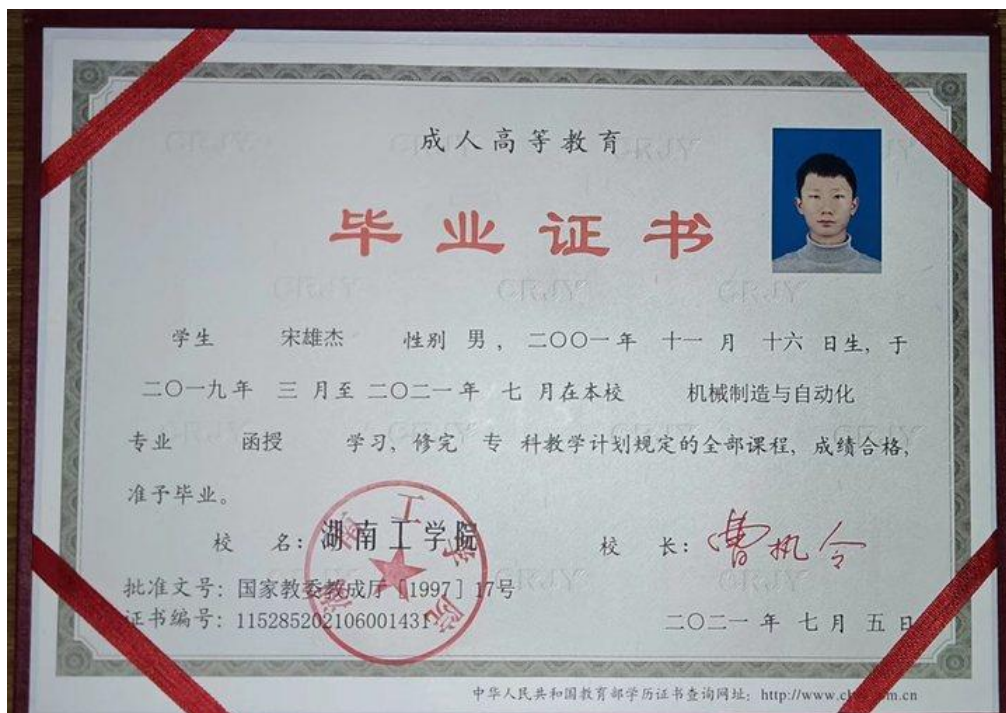 成人高等教育
毕业证书
学生 宋雄杰 性别 男，二〇〇一年 十一 月 十六 日生，于
二〇一九年 三 月至 二〇二一年 七 月在本校 机械制造与自动化
专业 函授 学习，修完 专 科教学计划规定的全部课程，成绩合格，
准予毕业。
校 名：湖南工学院
校 长：曹执令
批准文号：国家教委教成厅［1997］17号
证书编号：115285202106001431
二〇二一 年 七 月 五 日
湖南工学院
中华人民共和国教育部学历证书查询网址：http://www.ch m.cn